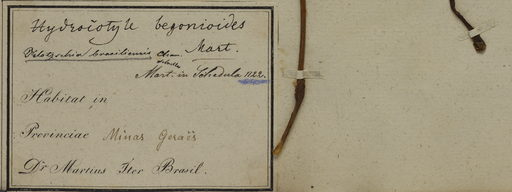 Hydrocotyle begonioides
Mart.
brasiliensis Cham.
Mart. in Schedula 1122.
Habitat in
Provinciae Minas Geraës
Dr Martius Iter Brasil.